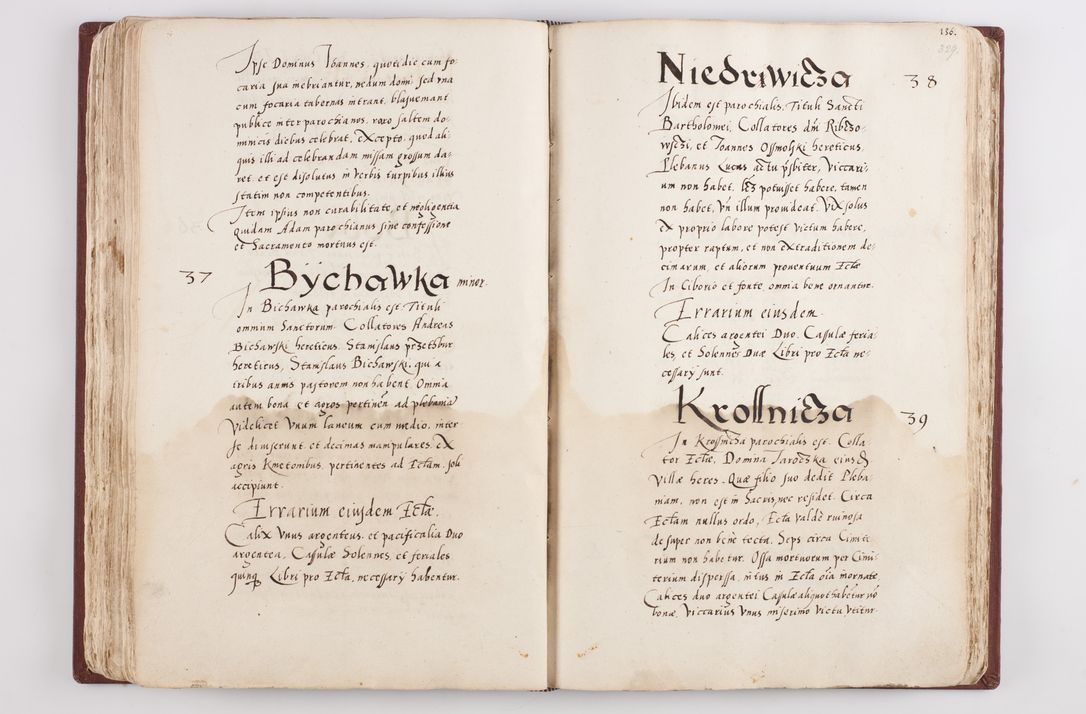 Ipse Dominus Ioannes, quotidie cum fo=
caria sua inebriantur, nedum domi sed una
cum focaria tabernas intrant, blasuemant
publice inter parochianos, raro saltem do=
minicis diebus celebrat, excepto, quod ali=
quis illi ad celebrandam missam grossum da=
ret. et est disolutus in verbis turpibus illius
statim non competentibus.
Item ipsius non curabilitate, et negligentia
quidam Adam parochianus sine confessione
et Sacramento mortuus est.
37 Bÿchawka minor.
In Bichawka parochialis est. Tituli
omnium Sanctorum. Collatores Andreas
Bichawski hereticus, Stanislaus
hereticus, Stanislaus Bichawski. qui a
tribus annis pastorem non habent. Omnia
autem bona et agros pertinen ad plebaniā
Videlicet Vnum laneum cum medio, inter
se diuiserunt. et decimas manipulares, ex
agris Kmetonibus, pertinentes ad Ecłam. sibi
accipiunt.
Errarium eiusdem Ecłæ.
Calix Vnus argenteus. et pacificalia Duo
argentea, Casulæ Solennes, et feriales
quinq. Libri pro Ecła, necessarÿ habentur.
136.
329.
Niedrwicza 38
Ibidem est parochialis. Tituli Sancti
Bartholomei, Collatores dni Ribczo=
wsczi, et Joannes Ossmolski hereticus.
Plebanus Lucas actu pſbiter, Viccari=
um non habet, licz potuisset habere, tamen
non habet, vn illum prouideat. Vix solus
ex proprio labore potest victum habere,
propter raptum, et non extraditionem de=
cimarum, et aliorum prouentuum Ecłæ
In Ciborio et fonte, omnia bene ornantur.
Errarium eiusdem.
Calices argentei Duo. Casulæ feria=
les et Solennes Duæ Libri pro Ecła ne=
cessarÿ sunt.
Krossnicza 39
In Krosnicza parochialis est. Colla=
tor Ecłæ, Domina Jaroczska eiusd
Villæ heres. Quæ filio suo dedit Pleba=
niam, non est in Sacris, nec residet. Circa
Ecłam nullus ordo, Ecła valdè ruinosa
desuper non bene tecta. Seps circa Cimite
rium non habetur. Ossa mortuorum per Cimi=
terium disperssa, intus in Ecła oīa inornate,
Calices duo argentei Casulæ aliquot habētur nō
bonæ, Viccarius Vnus miserimo victu vtitur